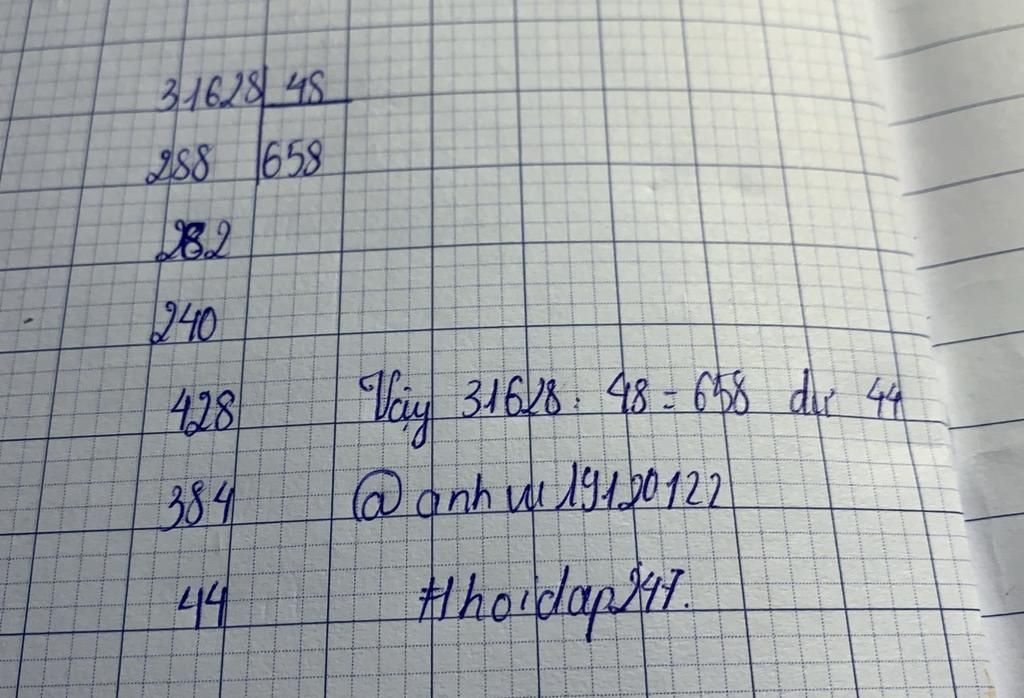 31628 48
288 658
282
240
428 Vậy 31628 : 48 = 658 dư 44
384 @ anh vu 19120122
44 #hoidap247.